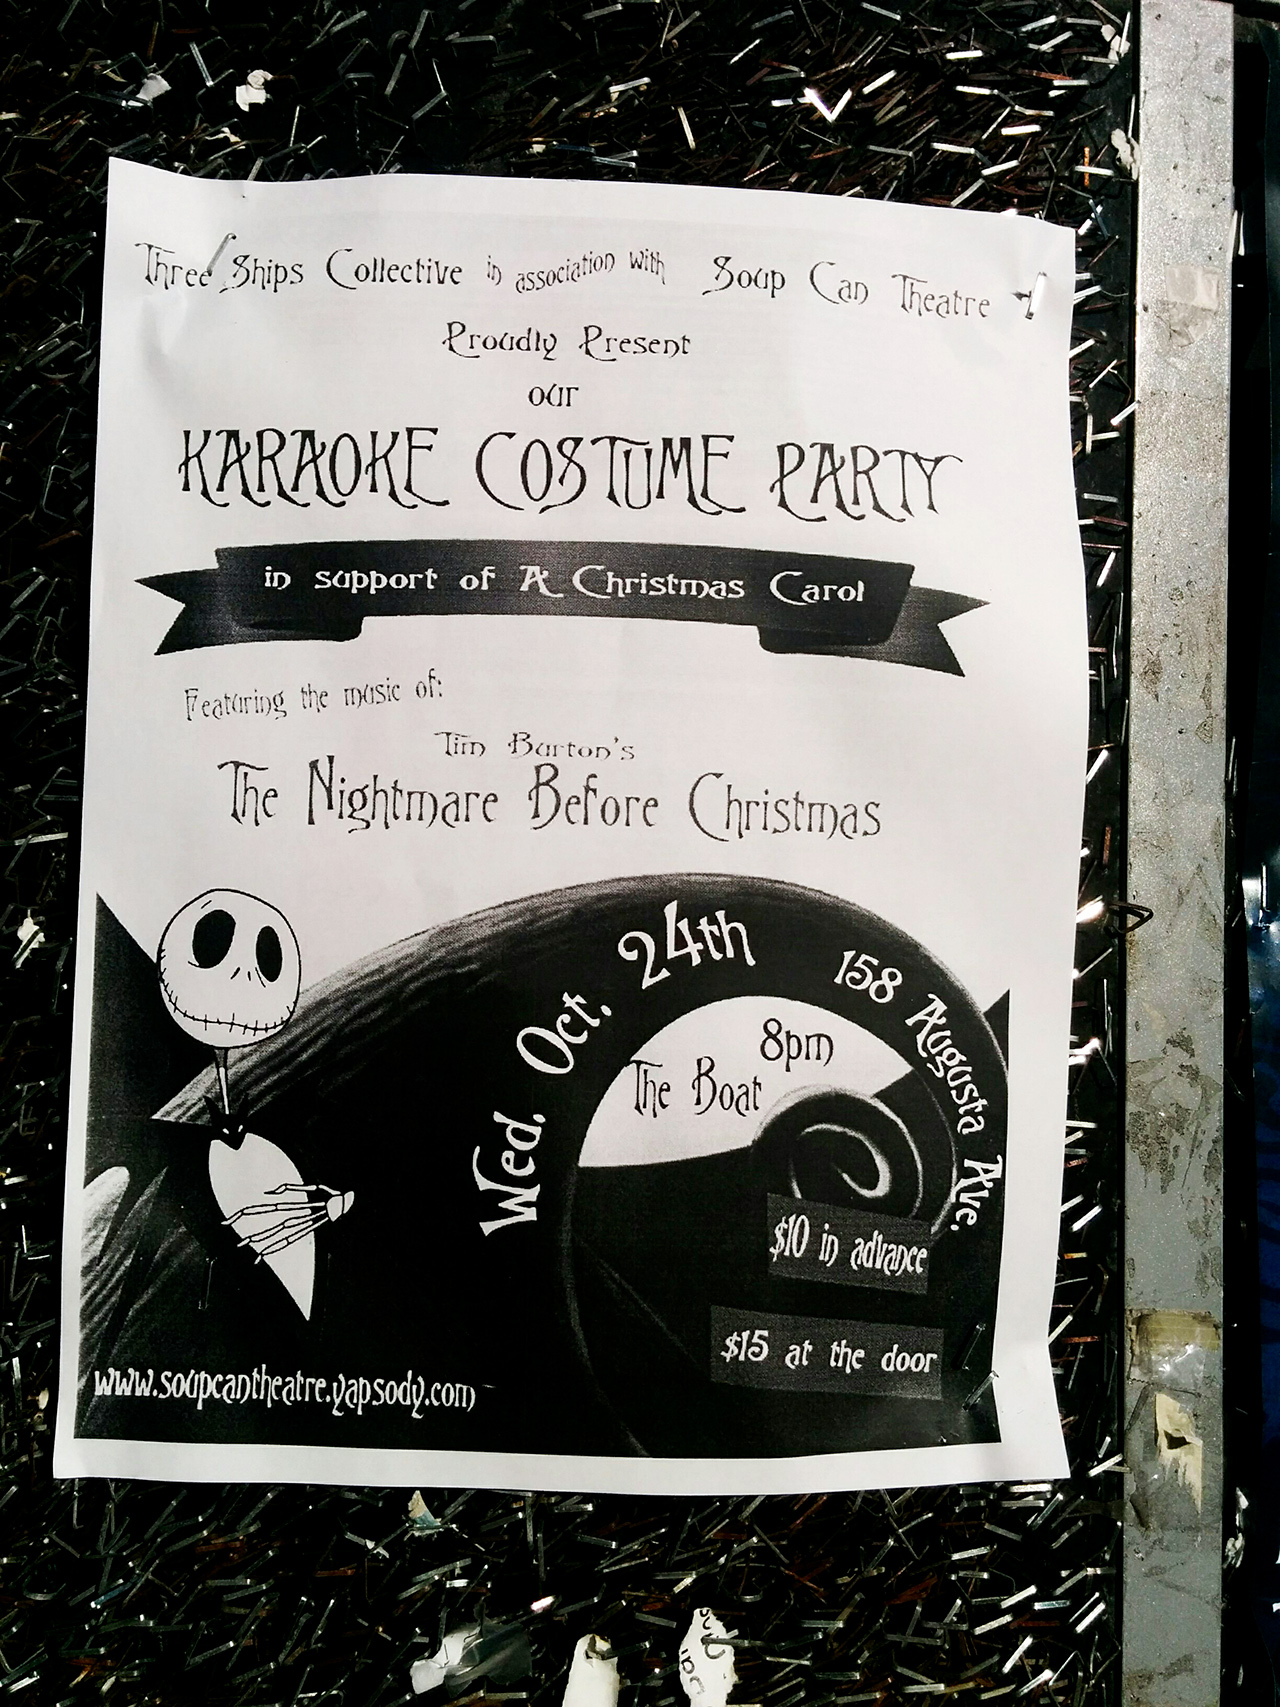 Three Ships Collective in association with Soup Can Theatre
Proudly Present
our
KARAOKE COSTUME PARTY
in support of A Christmas Carol
Featuring the music of:
Tim Burton's
The Nightmare Before Christmas
Wed. Oct. 24th
158 Augusta Ave.
8pm
The Boat
$10 in advance
$15 at the door
www.soupcantheatre.yapsody.com